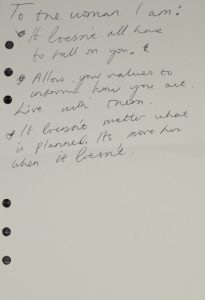 To the woman I am:
* It doesn't all have
to fall on you. &
* Allow your values to
inform how you act.
Live with them.
* It doesn't matter what
is planned. Its more fun
when it doesn't.